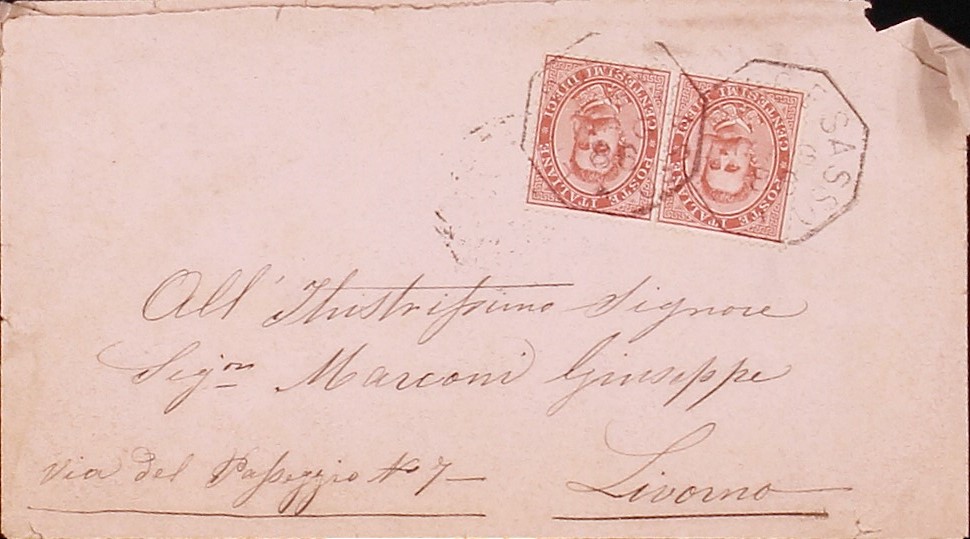 POSTE ITALIANE * CENTESIMI DIECI *
POSTE ITALIANE * CENTESIMI DIECI *
SASS
All' Illustrissimo Signore
Sigre Marconi Giuseppe
Via del Passeggio No 7
Livorno